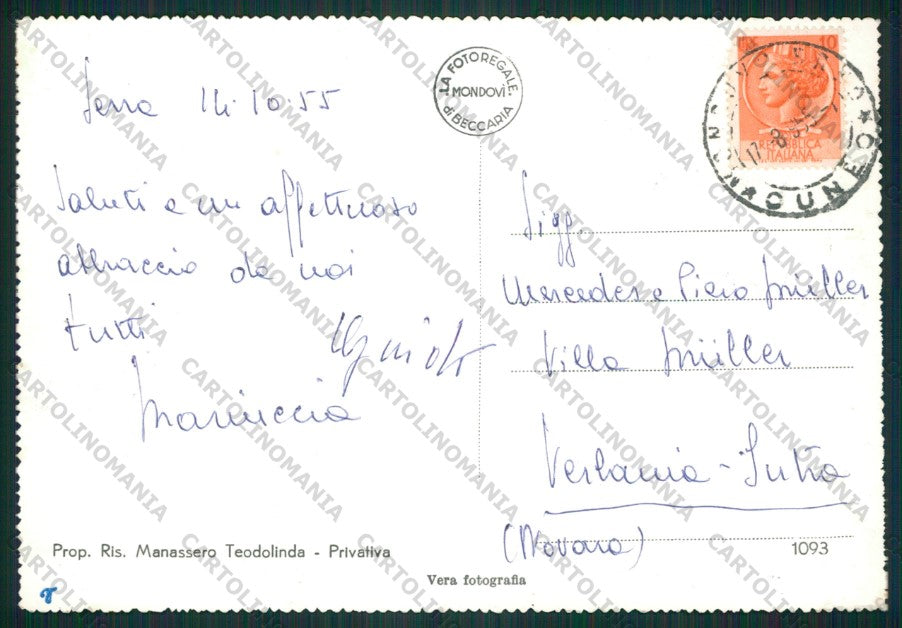 LA FOTOREGALE
MONDOVÌ
di BECCARIA
10
REPUBBLICA
ITALIANA
CUNEO
Serra 14.10.55
Saluti e un affettuoso
abbraccio da noi
tutti
Mariuccia
Sigg.
Mercedes e Piero Müller
Villa Müller
Verbania - Intra
(Novara)
Prop. Ris. Manassero Teodolinda - Privativa
1093
Vera fotografia
CARTOLINOMANIA